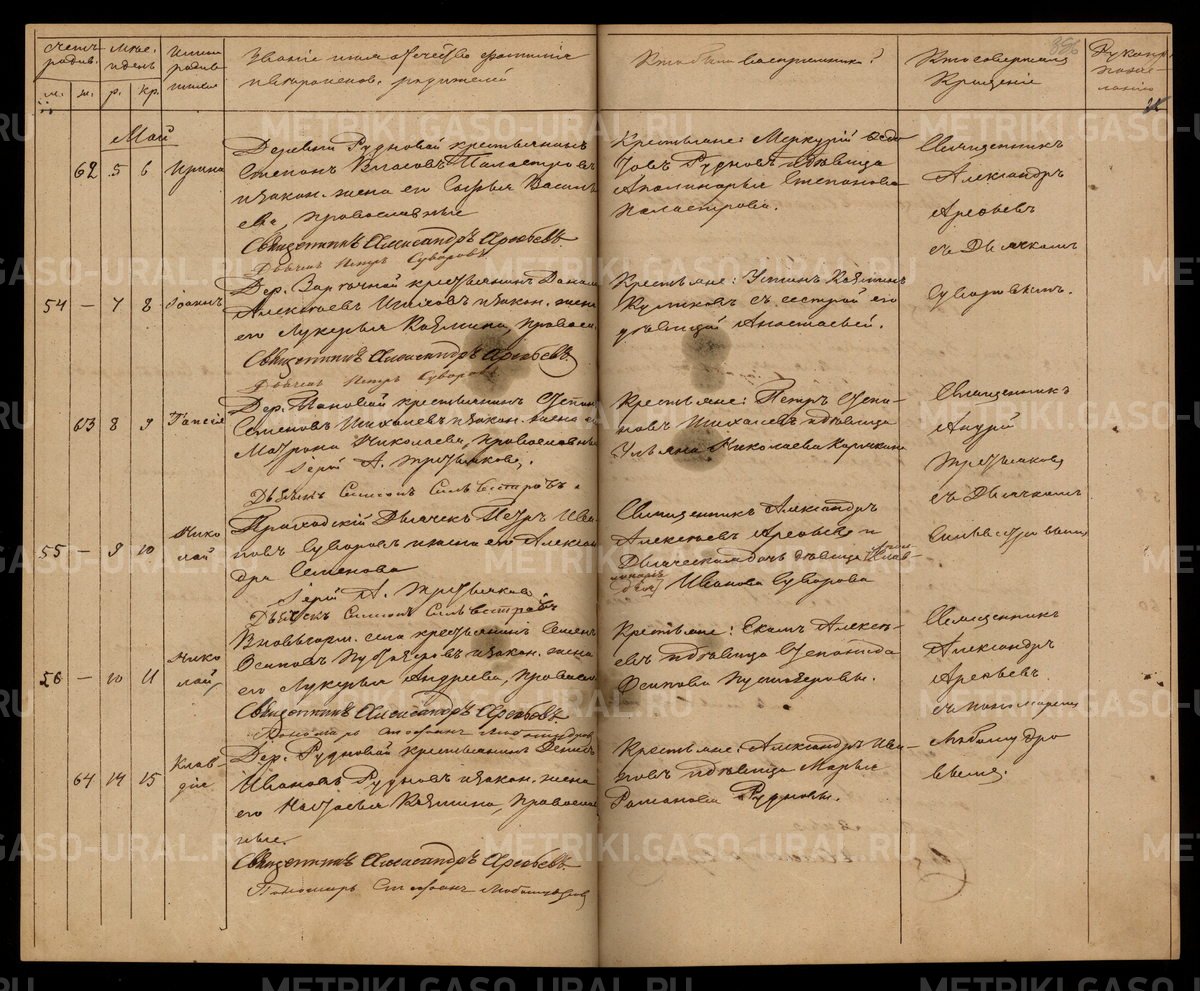 Счетъ родив.
Мѣс. и день
Имена родив-
шихся
Званіе имя отчество фамилія
и вѣроисповѣд. родителей
Кто были воспріемники?
Кто совершалъ
Крещеніе
Рукопри-
м. ж. р. кр.
Май
62 5 6 Ирина
Деревни Рудновой крестьянинъ
Степанъ Власовъ
и закон. жена его Софья Василь
ева, православные
Священникъ Александръ Арефьевъ
Дьячекъ Петръ Суворовъ
Крестьяне: Меркурій Ѳедо
товъ Рудновъ и дѣвица
Степанова
Священникъ
Александръ
Арефьевъ
съ Дьячкомъ
Суворовымъ.
54 — 7 8 Іоаннъ
Дер. крестьянинъ
Алексѣевъ и закон. жена
его Лукерья Козмина, правосл.
Священникъ Александръ Арефьевъ
Дьячекъ Петръ Суворовъ
Крестьяне: Устинъ Козминъ
Куликовъ съ сестрой его
дѣвицей Анастасьей.
63 8 9 Таисія
Дер. крестьянинъ Степанъ
Семеновъ Шихалевъ и закон. жена его
Матрона Николаева, православные
Іерей А. Третьяковъ.
Дьячекъ Симеонъ Сильвестровъ.
Крестьяне: Петръ Степа-
новъ Шихалевъ и дѣвица
Ульяна Николаева
Священникъ
Андрей
Третьяковъ
съ Дьячкомъ
55 — 9 10 Нико
лай
Приходскій Дьячекъ Петръ Ива-
новъ Суворовъ и жена его Алексан
дра Семенова
Іерей А. Третьяковъ.
Дьячекъ Симеонъ Сильвестровъ
Священникъ Александръ
Алексѣевъ Арефьевъ и
Дьяческая дочь дѣвица
Иванова Суворова
56 — 10 11 Нико
лай
села крестьянинъ Семенъ
Осиповъ и закон. жена
его Лукерья Андреева, правосл.
Священникъ Александръ Арефьевъ
Пономарь Стефанъ Любомудровъ
Крестьяне: Алексѣ-
евъ и дѣвица Степанида
Осипова
Священникъ
Александръ
Арефьевъ
съ пономаремъ
Любомудро
вымъ.
64 14 15 Клав
дія
Дер. Рудновой крестьянинъ Денисъ
Ивановъ Рудновъ и закон. жена
его Настасья Козмина, православ
ные.
Священникъ Александръ Арефьевъ
Пономарь Стефанъ Любомудровъ
Крестьяне: Александръ Ива-
новъ и дѣвица Марья
Романова Рудновы.
METRIKI.GASO-URAL.RU